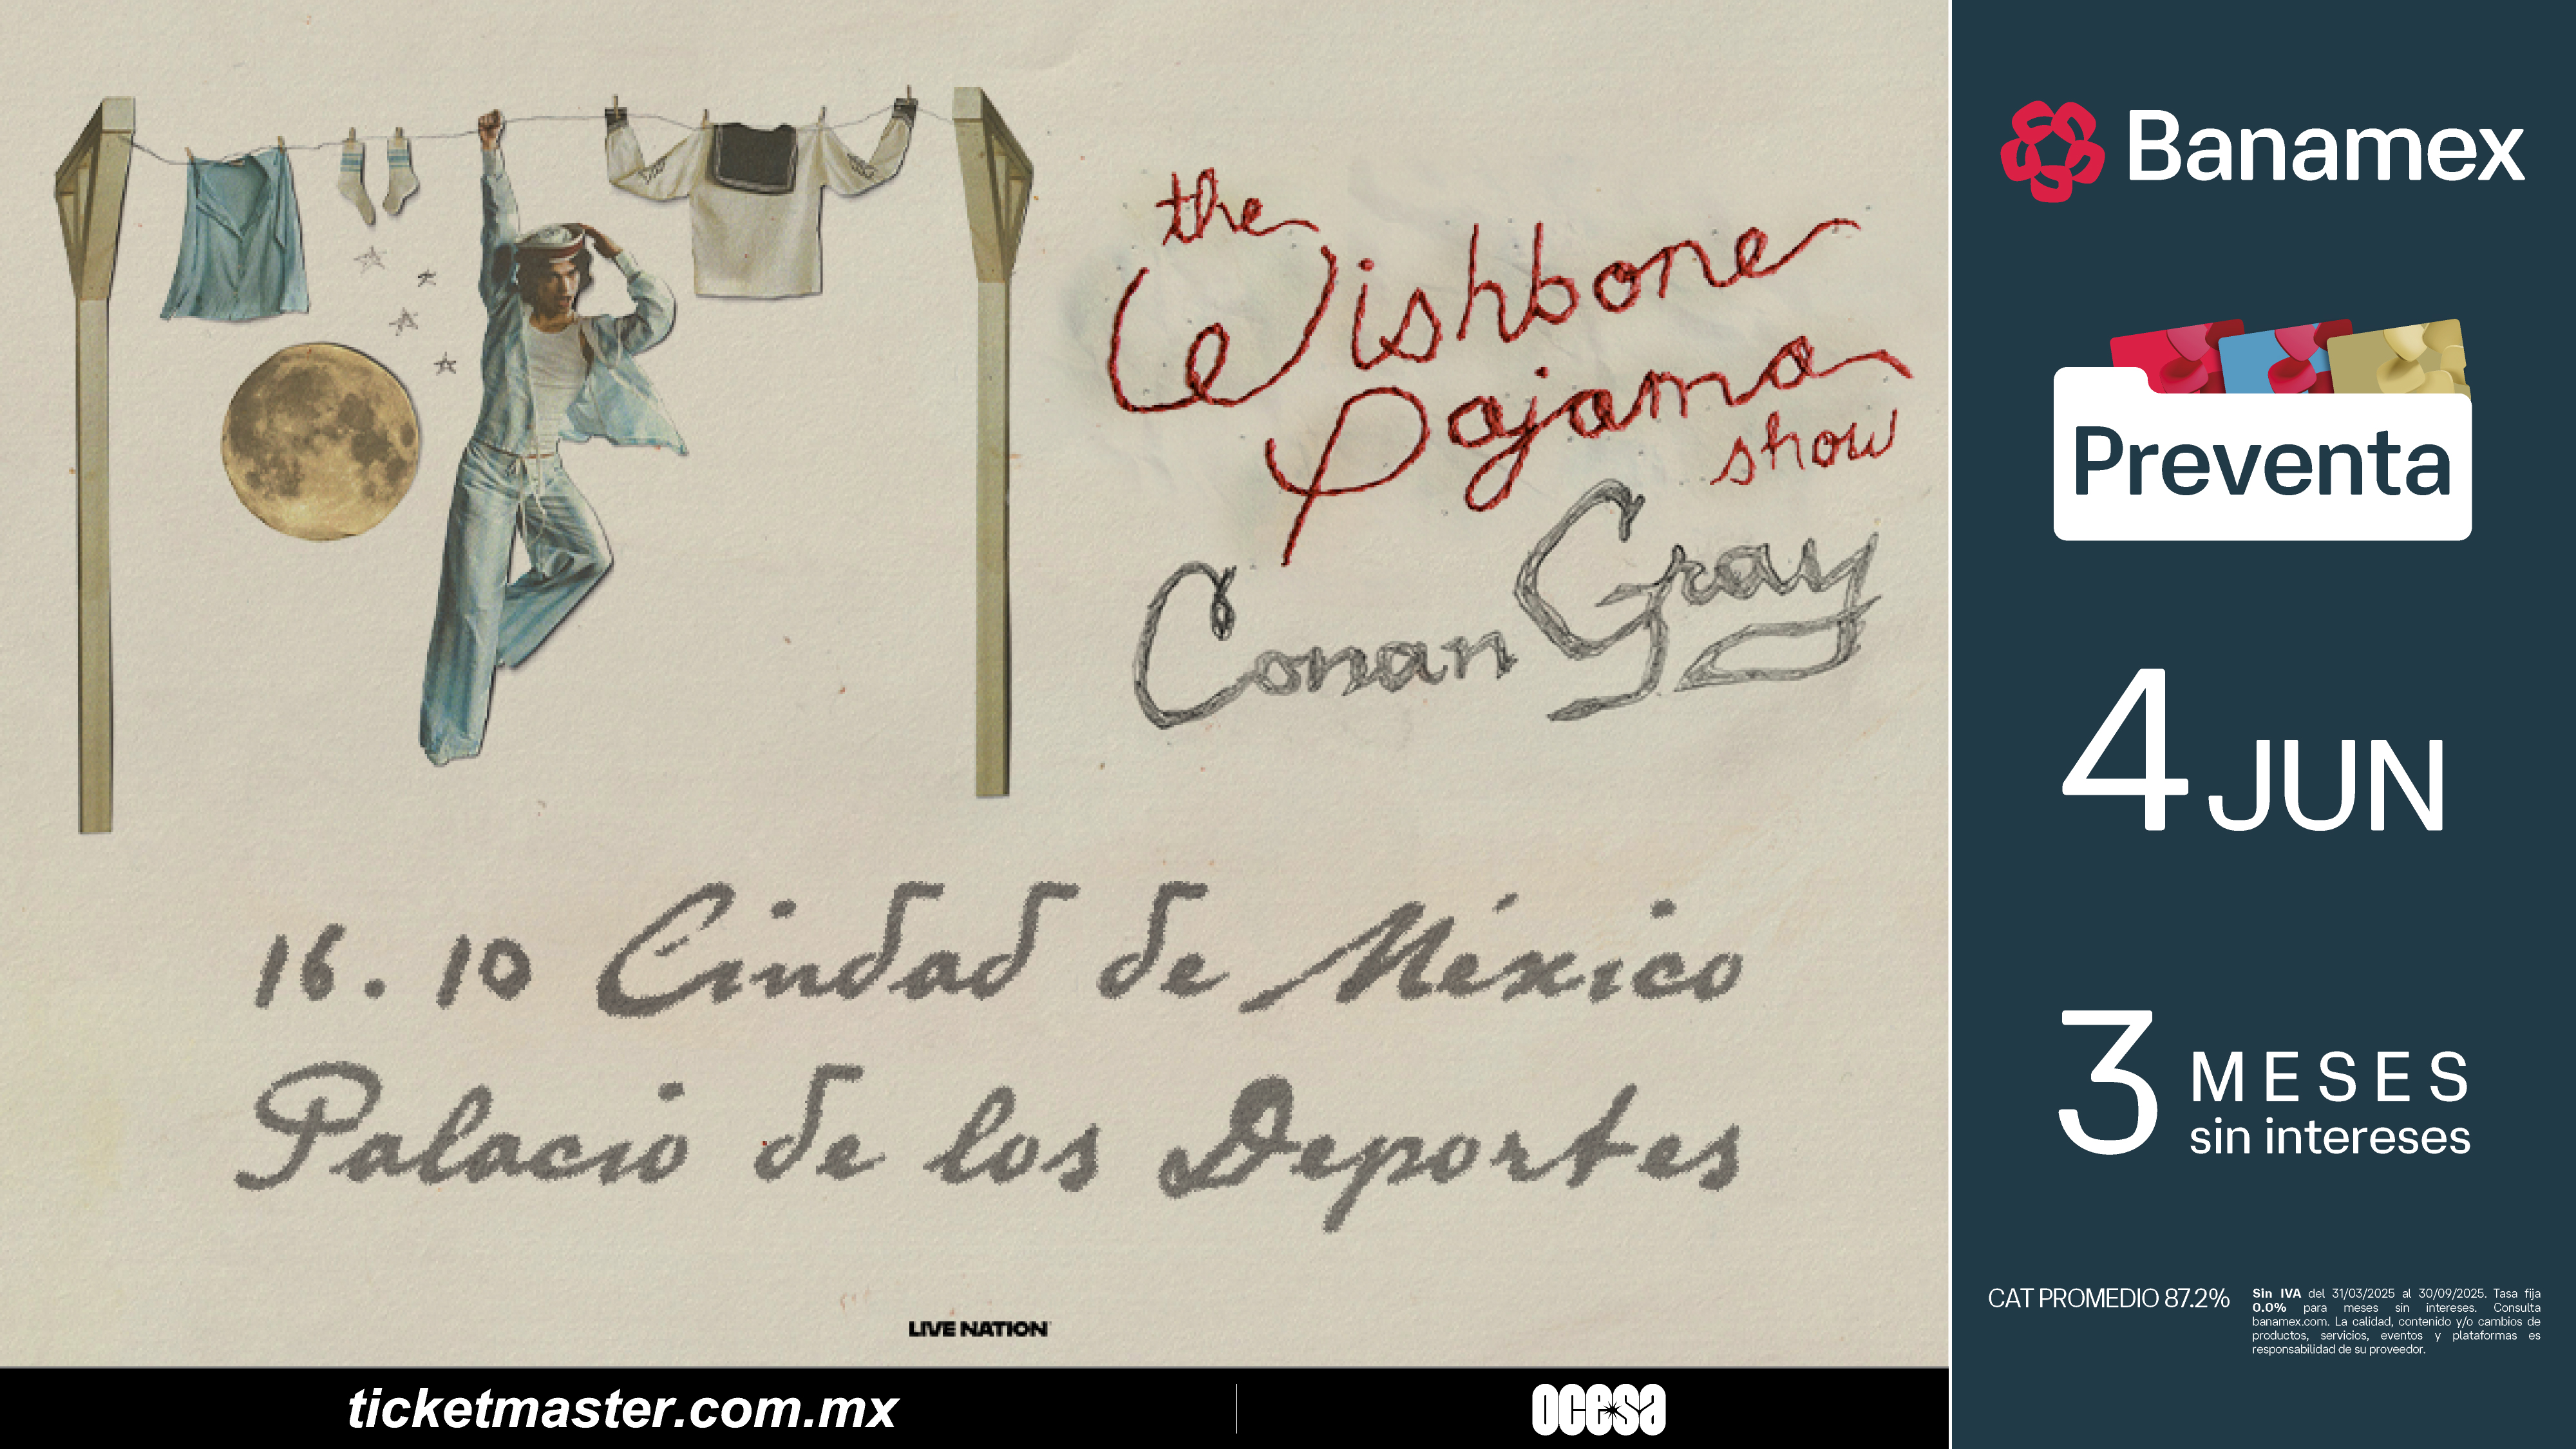 the
Wishbone
Pajama
show
Conan Gray
16.10 Ciudad de México
Palacio de los Deportes
LIVE NATION
ticketmaster.com.mx
ocesa
Banamex
Preventa
4 JUN
3 MESES
sin intereses
CAT PROMEDIO 87.2%
Sin IVA del 31/03/2025 al 30/09/2025. Tasa fija
0.0% para meses sin intereses. Consulta
banamex.com. La calidad, contenido y/o cambios de
productos, servicios, eventos y plataformas es
responsabilidad de su proveedor.